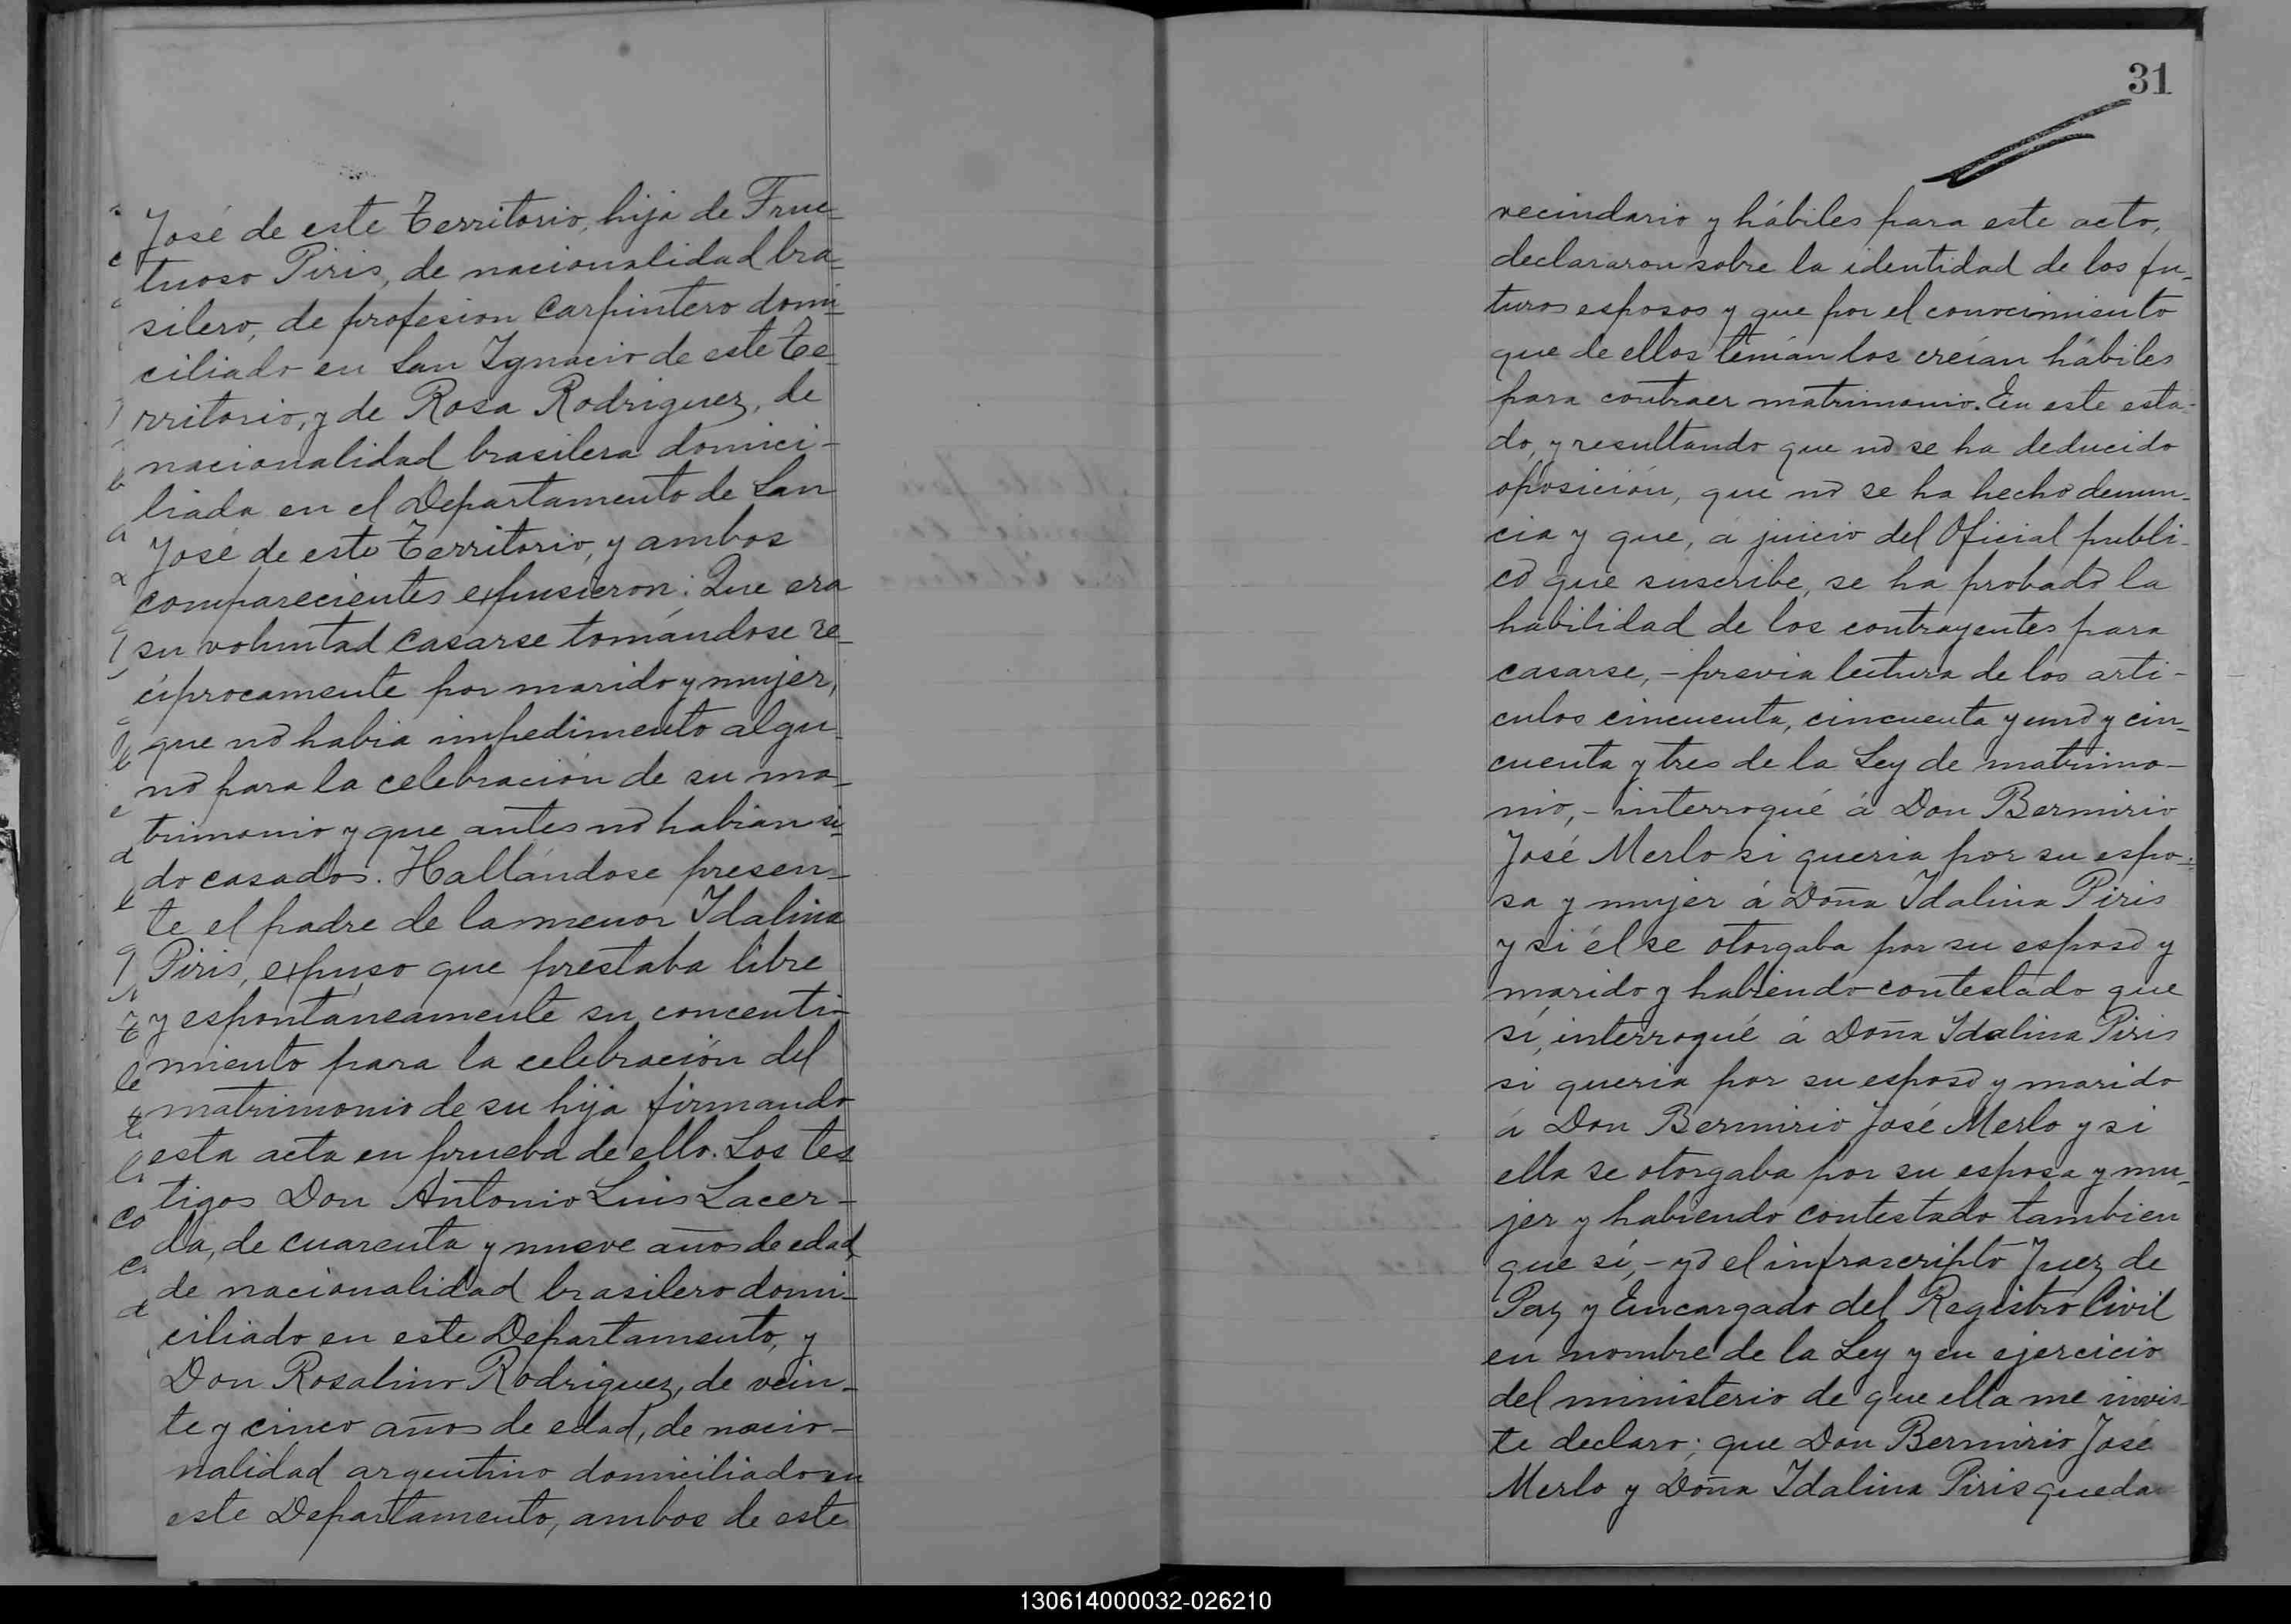 José de este Territorio, hija de Fruc-
tuoso Piris, de nacionalidad bra-
silero, de profesion carpintero domi-
ciliado en San Ignacio de este Te-
rritorio, y de Rosa Rodriguez, de
nacionalidad brasilera domici-
liada en el Departamento de San
José de este Territorio, y ambos
comparecientes expusieron: Que era
su voluntad casarse tomándose re-
ciprocamente por marido y mujer,
que no habia impedimento algu-
no para la celebración de su ma-
trimonio y que antes no habian si-
do casados. Hallándose presen-
te el padre de la menor Idalina
Piris, expuso que prestaba libre
y espontaneamente su concenti-
miento para la celebración del
matrimonio de su hija firmando
esta acta en prueba de ello. Los tes-
tigos Don Antonio Luis Lacer-
da, de cuarenta y nueve años de edad,
de nacionalidad brasilero domi-
ciliado en este Departamento, y
Don Rosalino Rodriguez, de vein-
te y cinco años de edad, de nacio-
nalidad argentino domiciliado en
este Departamento, ambos de este
31
vecindario y hábiles para este acto,
declararon sobre la identidad de los fu-
turos esposos y que por el conocimiento
que de ellos tenían los creían hábiles
para contraer matrimonio. En este esta-
do, y resultando que no se ha deducido
oposición, que no se ha hecho denun-
cia y que, á juicio del Oficial publi-
co que suscribe, se ha probado la
habilidad de los contrayentes para
casarse, - previa lectura de los arti-
culos cincuenta, cincuenta y uno y cin-
cuenta y tres de la Ley de matrimo-
nio, - interrogué á Don Bermirio
José Merlo si queria por su espo-
sa y mujer á Doña Idalina Piris
y si él se otorgaba por su esposo y
marido y habiendo contestado que
sí, interrogué á Doña Idalina Piris
si queria por su esposo y marido
á Don Bermirio José Merlo y si
ella se otorgaba por su esposa y mu-
jer y habiendo contestado tambien
que sí, - yo el infrascripto Juez de
Paz y Encargado del Registro Civil
en nombre de la Ley y en ejercicio
del ministerio de que ella me invis-
te declaro; que Don Bermirio José
Merlo y Doña Idalina Piris quedan
130614000032-026210